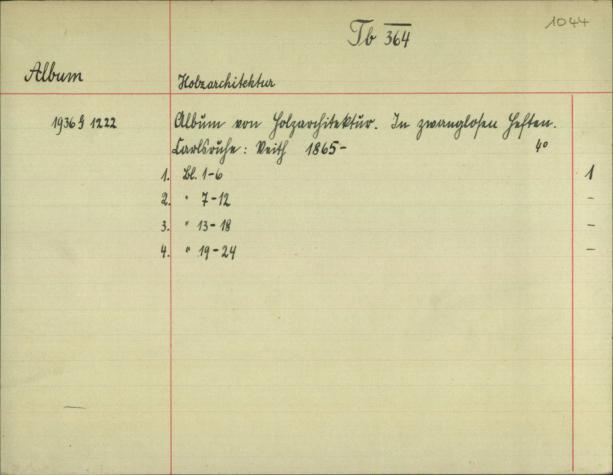 Tb 364
1044
Album
Holzarchitektur
1936 G 1222
Album von Holzarchitektur. In zwanglosen Heften.
Carlsruhe: Veith 1865- 4°
1. Bl. 1-6 1
2. " 7-12 -
3. " 13-18 -
4. " 19-24 -